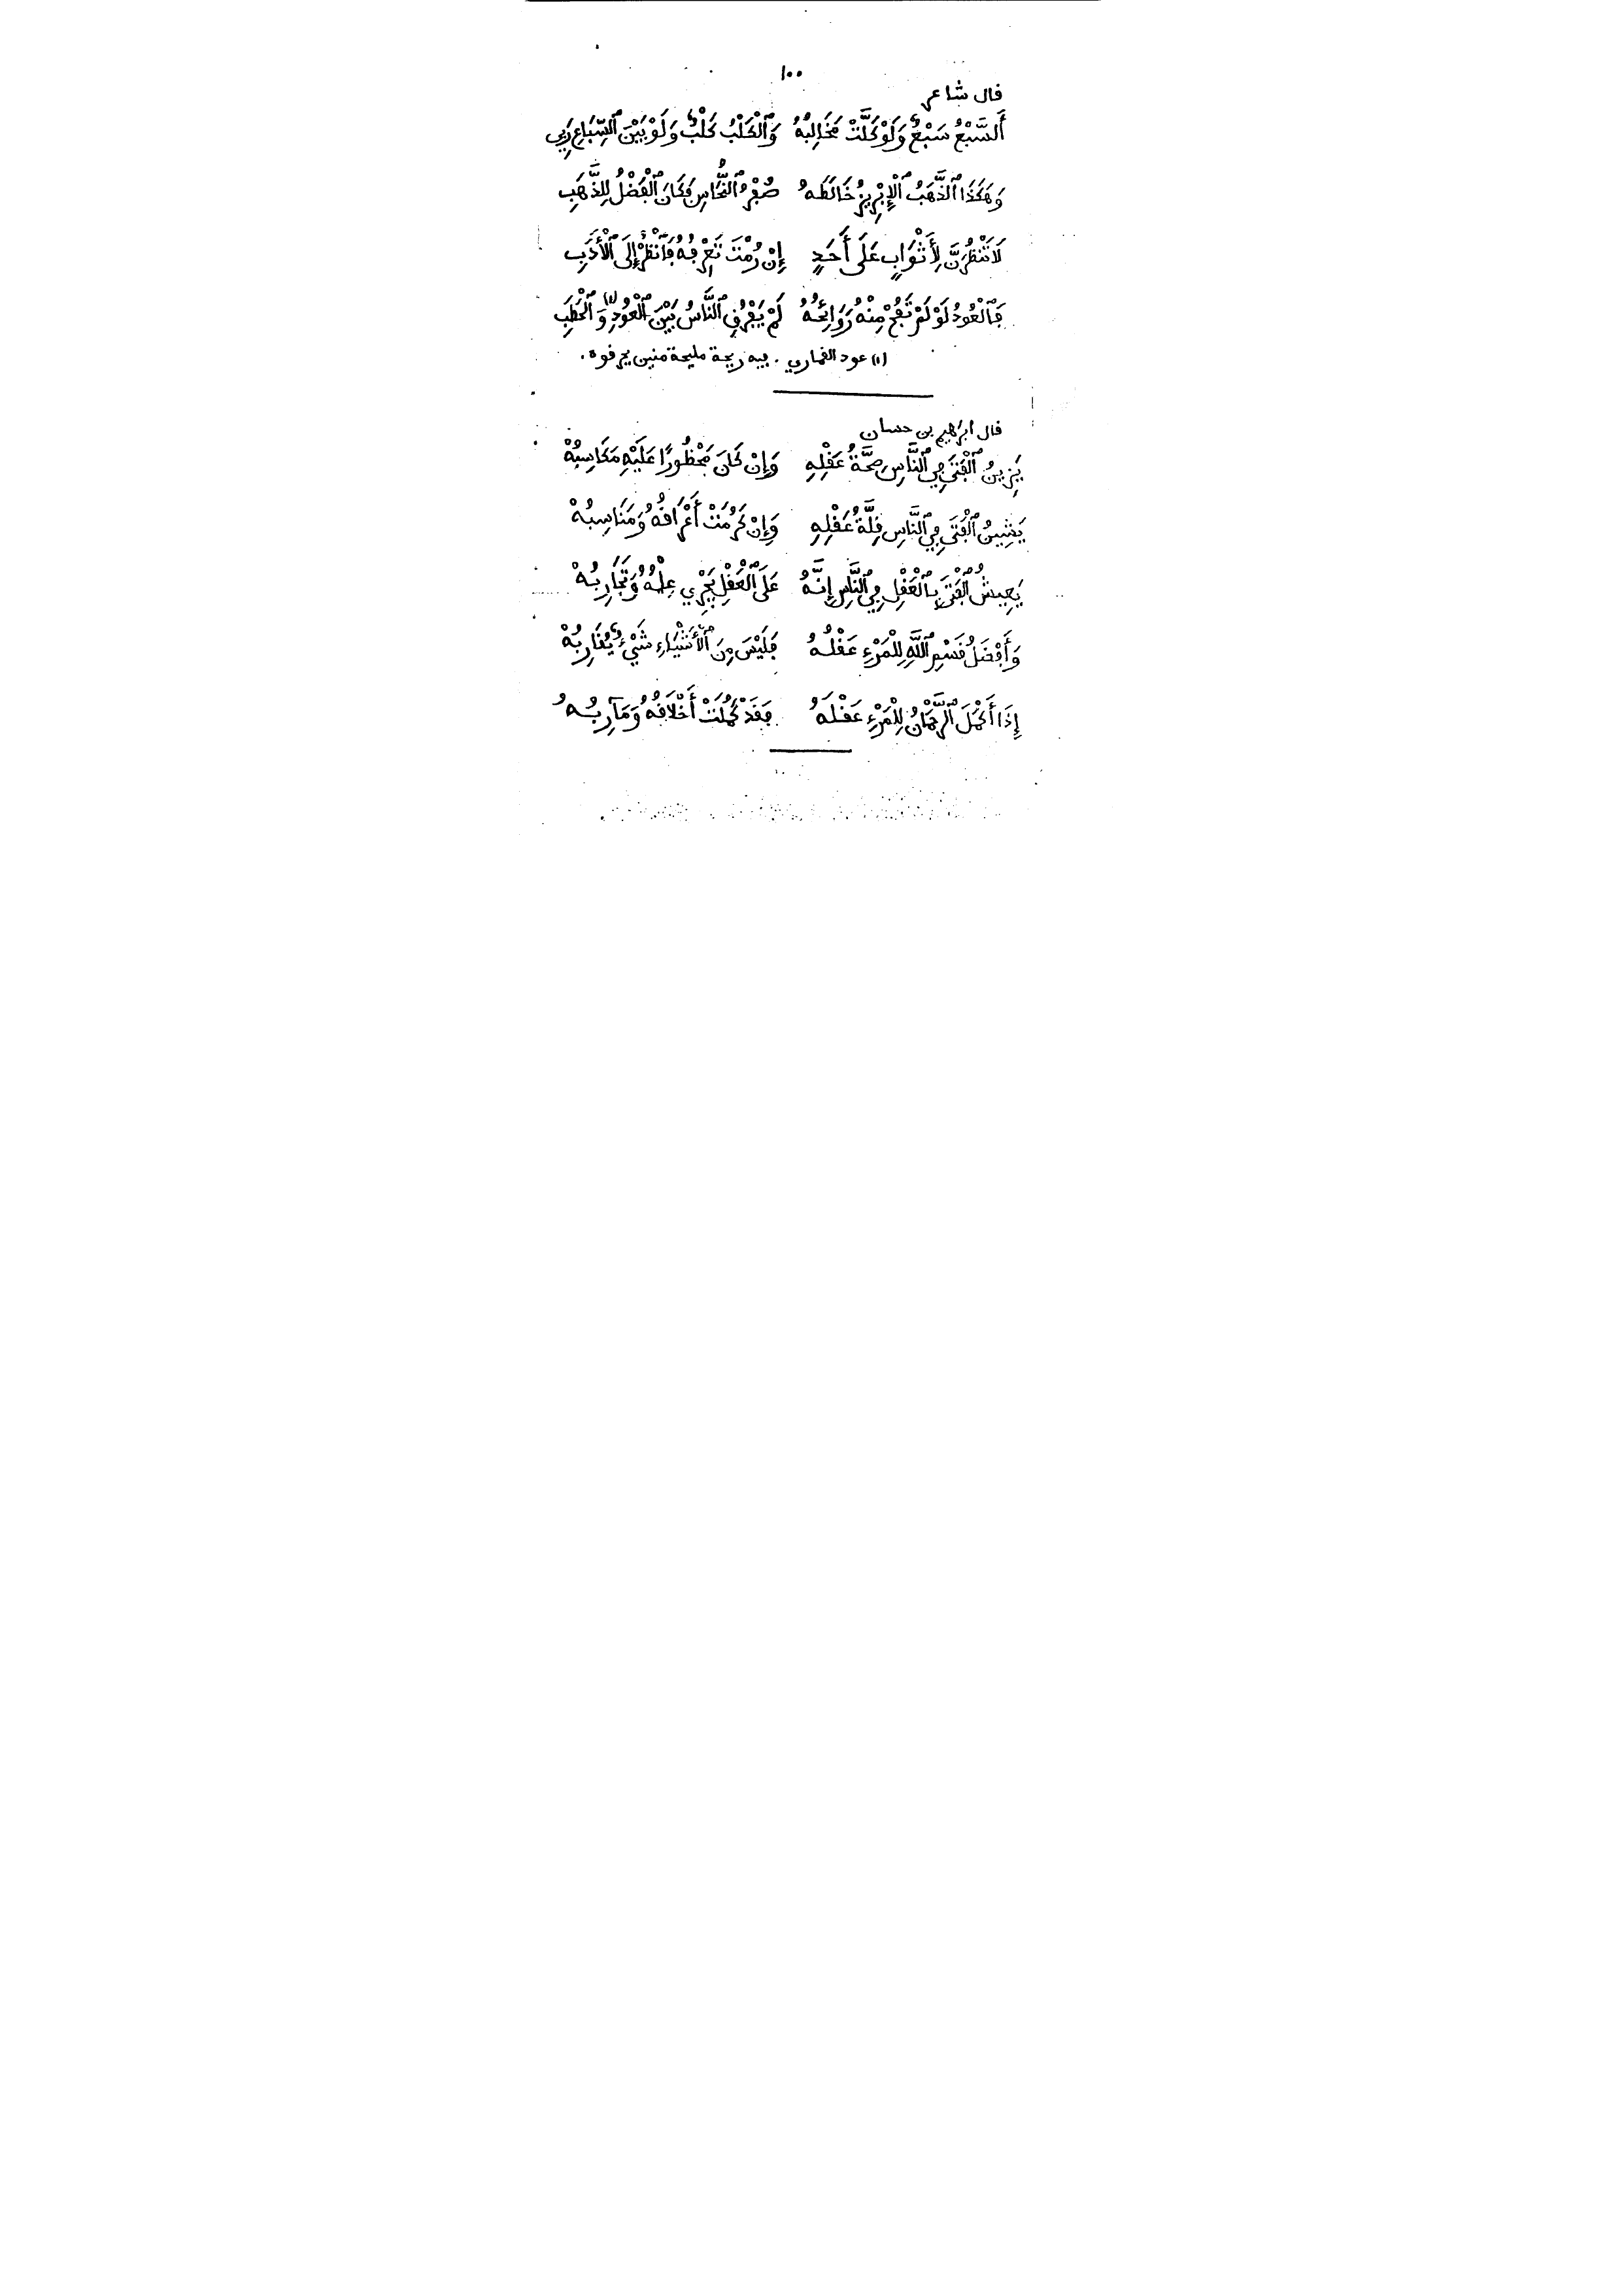 ١٠٠
قال شاعر
أَلسَّبْعُ سَبْعٌ وَلَوْ كَلَّتْ مَخَالِبُهُ وَٱلْكَلْبُ كَلْبٌ وَلَوْ بَيْنَ ٱلسِّبَاعِ رَبِي
وَهَكَذَا ٱلذَّهَبُ ٱلْإِبْرِيزُ خَالَطَهُ صُفْرُ ٱلنُّحَاسِ فَكَانَ ٱلْفَضْلُ لِلذَّهَبِ
لَا تَنْظُرَنَّ لِأَثْوَابٍ عَلَى أَحَدٍ إِنْ رُمْتَ تَعْرِفُهُ فَٱنْظُرْ إِلَى ٱلْأَدَبِ
فَٱلْعُودُ لَوْ لَمْ تَفُحْ مِنْهُ رَوَائِحُهُ لَمْ يَفْرُقِ ٱلنَّاسُ بَيْنَ ٱلْعُودِ (١) وَٱلْحَطَبِ
(١) عود القماري . فيه ريحة مليحة منين يحرقوه .
قال ابراهيم بن حسان
يَزِينُ ٱلْفَتَى فِي ٱلنَّاسِ صِحَّةُ عَقْلِهِ وَإِنْ كَانَ مَحْظُورًا عَلَيْهِ مَكَاسِبُهْ
يَشِينُ ٱلْفَتَى فِي ٱلنَّاسِ قِلَّةُ عَقْلِهِ وَإِنْ كَرُمَتْ أَعْرَاقُهُ وَمَنَاسِبُهْ
يَعِيشُ ٱلْفَتَى بِٱلْعَقْلِ فِي ٱلنَّاسِ إِنَّهُ عَلَى ٱلْعَقْلِ يَجْرِي عِلْمُهُ وَتَجَارِبُهْ
وَأَفْضَلُ قَسْمِ ٱللَّهِ لِلْمَرْءِ عَقْلُهُ فَلَيْسَ مِنَ ٱلْأَشْيَاءِ شَيْءٌ يُقَارِبُهْ
إِذَا أَكْمَلَ ٱلرَّحْمَانُ لِلْمَرْءِ عَقْلَهُ فَقَدْ كَمُلَتْ أَخْلَاقُهُ وَمَآرِبُهُ